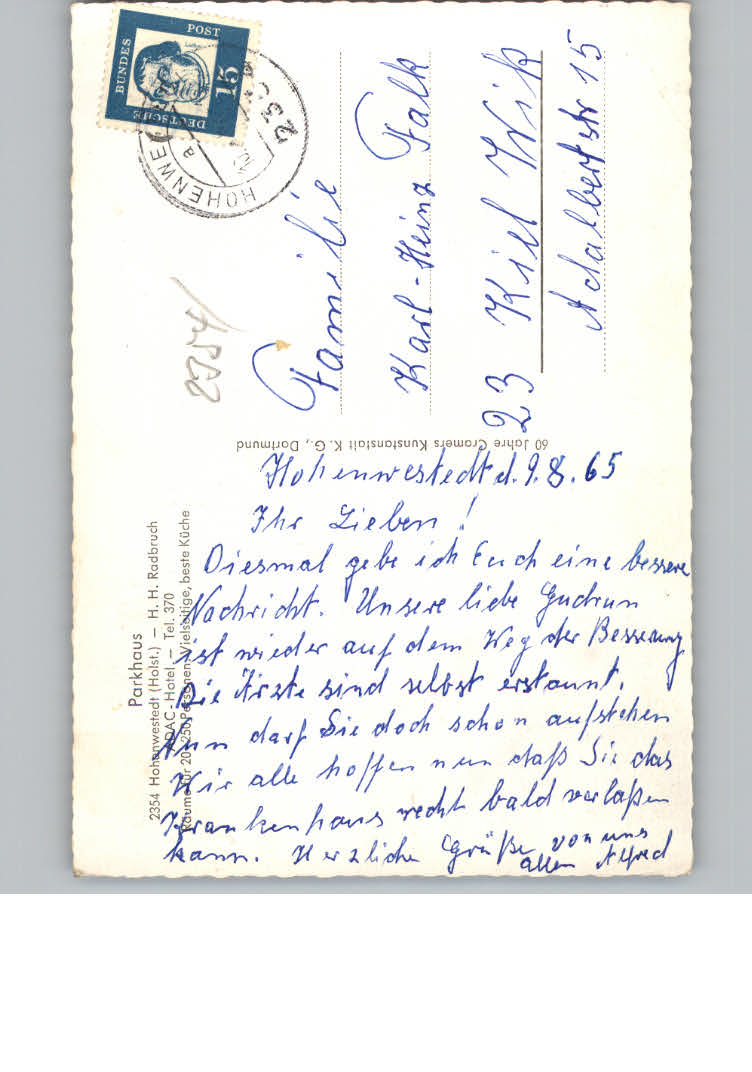 DEUTSCHE
BUNDES
POST
15
HOHENWE
a
23
2354
Familie
Karl-Heinz Falk
23 Kiel Wik
Adalbertstr 15
60 Jahre Cramers Kunstanstalt K. G., Dortmund
Parkhaus
2354 Hohenwestedt (Holst.) — H. H. Radbruch
ADAC - Hotel — Tel. 370
Räume für 20-250 Personen, Vielseitige, beste Küche
Hohenwestedt d. 9.8.65
Ihr Lieben!
Diesmal gebe ich Euch eine bessere
Nachricht. Unsere liebe Gudrun
ist wieder auf dem Weg der Besserung
Die Ärzte sind selbst erstaunt.
Nun darf Sie doch schon aufstehen
Wir alle hoffen nun daß Sie das
Krankenhaus recht bald verlaßen
kann. Herzliche Grüße von uns
allen Alfred